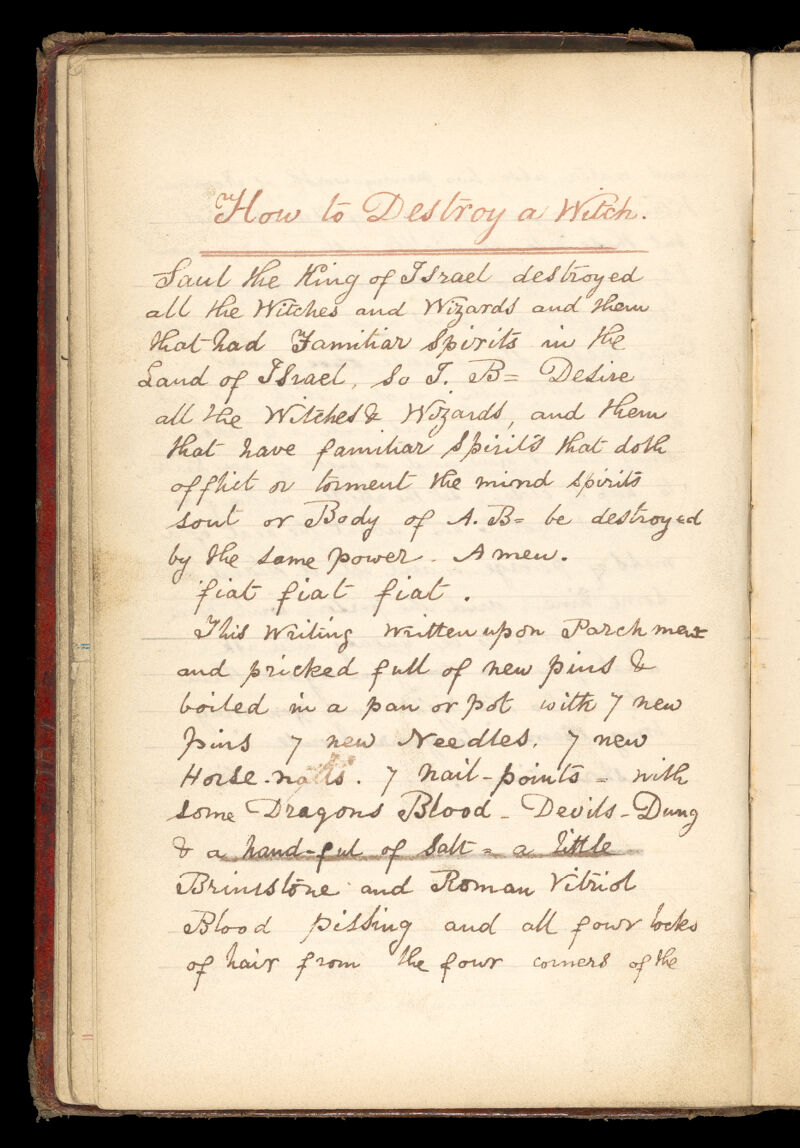 How to Destroy a Witch.
Saul the King of Israel destroyed
all the Witches and Wizards and them
that had Familiar Spirits in the
Land of Israel, So I. B= Desire
all the Witches & Wizards, and them
that have familiar Spirits that doth
offlict or torment the mind spirits
soul or Body of A. B= be destroyed
by the same power. Amen.
fiat fiat fiat.
This Writing written upon Parchment
and pricked full of new pins &
boiled in a pan or pot with 7 new
pins 7 new Needles. 7 new
Horse-nails. 7 nail-points = with
some Dragons Blood - Devils-Dung
& a hand-ful of Salt = a little
Brimstone and Roman Vitriol
Blood pissing and all fowr locks
of hair from the fowr corners of the